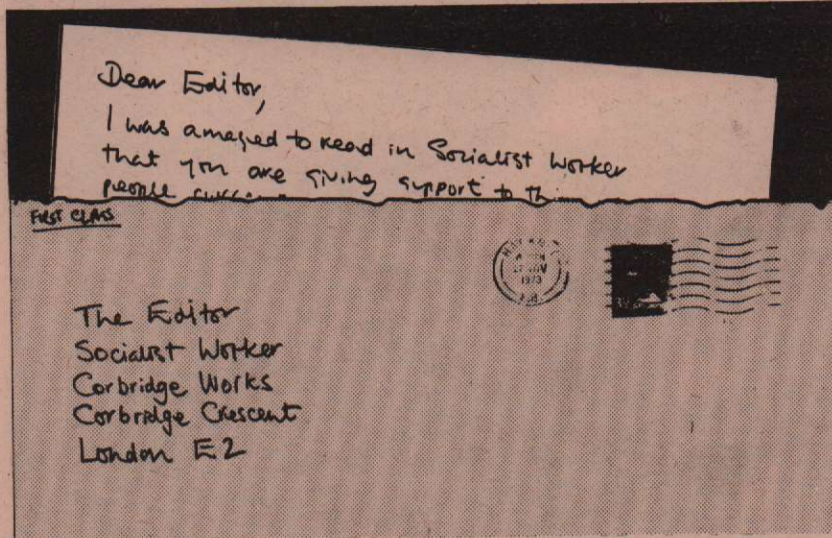 Dear Editor,
I was amazed to read in Socialist Worker
that you are giving support to
people
FIRST CLASS
NOV
1973
The Editor
Socialist Worker
Corbridge Works
Corbridge Crescent
London E2